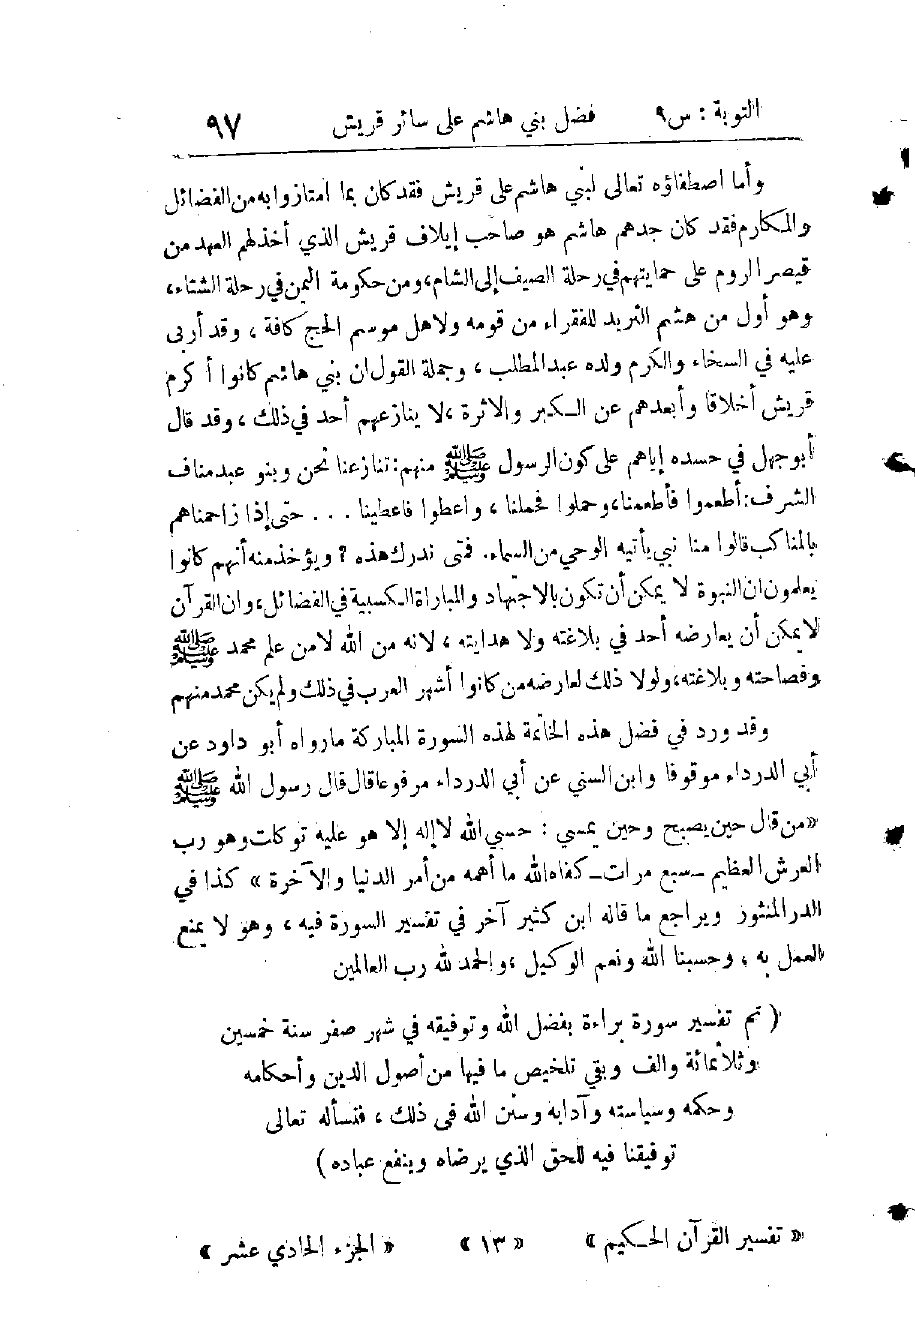 التوبة : س٩ فضل بني هاشم على سائر قريش ٩٧
وأما اصطفاؤه تعالى لبني هاشم على قريش فقد كان بما امتازوا به من الفضائل
والمكارم فقد كان جدهم هاشم هو صاحب إيلاف قريش الذي أخذ لهم العهد من
قيصر الروم على حمايتهم في رحلة الصيف إلى الشام، ومن حكومة اليمن في رحلة الشتاء،
وهو أول من هشم الثريد للفقراء من قومه ولاهل موسم الحج كافة ، وقد أربى
عليه في السخاء والكرم ولده عبد المطلب ، وجملة القول ان بني هاشم كانوا أكرم
قريش أخلاقا وأبعدهم عن الكبر والاثرة ، لا ينازعهم أحد في ذلك ، وقد قال
أبو جهل في حسده إياهم على كون الرسول ﷺ منهم: تنازعنا نحن وبنو عبد مناف
الشرف: أطعموا فأطعمنا، وحملوا فحملنا ، واعطوا فاعطينا . . . حتى إذا زاحمناهم
بالمناكب قالوا منا نبي يأتيه الوحي من السماء. فمتى ندرك هذه ? ويؤخذ منه أنهم كانوا
يعلمون ان النبوة لا يمكن أن تكون بالاجتهاد والمباراة الكسبية في الفضائل، وان القرآن
لا يمكن أن يعارضه أحد في بلاغته ولا هدايته ، لانه من الله لامن علم محمد ﷺ
وفصاحته وبلاغته، ولولا ذلك لعارضه من كانوا أشهر العرب في ذلك ولم يكن محمد منهم
وقد ورد في فضل هذه الخاتمة لهذه السورة المباركة مارواه أبو داود عن
أبي الدرداء موقوفا وابن السني عن أبي الدرداء مرفوعا قال قال رسول الله ﷺ
«من قال حين يصبح وحين يمسي : حسبي الله لا إله إلا هو عليه توكلت وهو رب
العرش العظيم ــ سبع مرات ــ كفاه الله ما أهمه من أمر الدنيا والآخرة » كذا في
الدر المنثور ويراجع ما قاله ابن كثير آخر في تفسير السورة فيه ، وهو لا يمنع
العمل به ، وحسبنا الله ونعم الوكيل ، والحمد لله رب العالمين
( تم تفسير سورة براءة بفضل الله وتوفيقه في شهر صفر سنة خمسين
وثلاثمائة والف وبقي تلخيص ما فيها من أصول الدين وأحكامه
وحكمه وسياسته وآدابه وسنن الله في ذلك ، فنسأله تعالى
توفيقنا فيه للحق الذي يرضاه وينفع عباده )
« تفسير القرآن الحكيم » « ١٣ » « الجزء الحادي عشر »